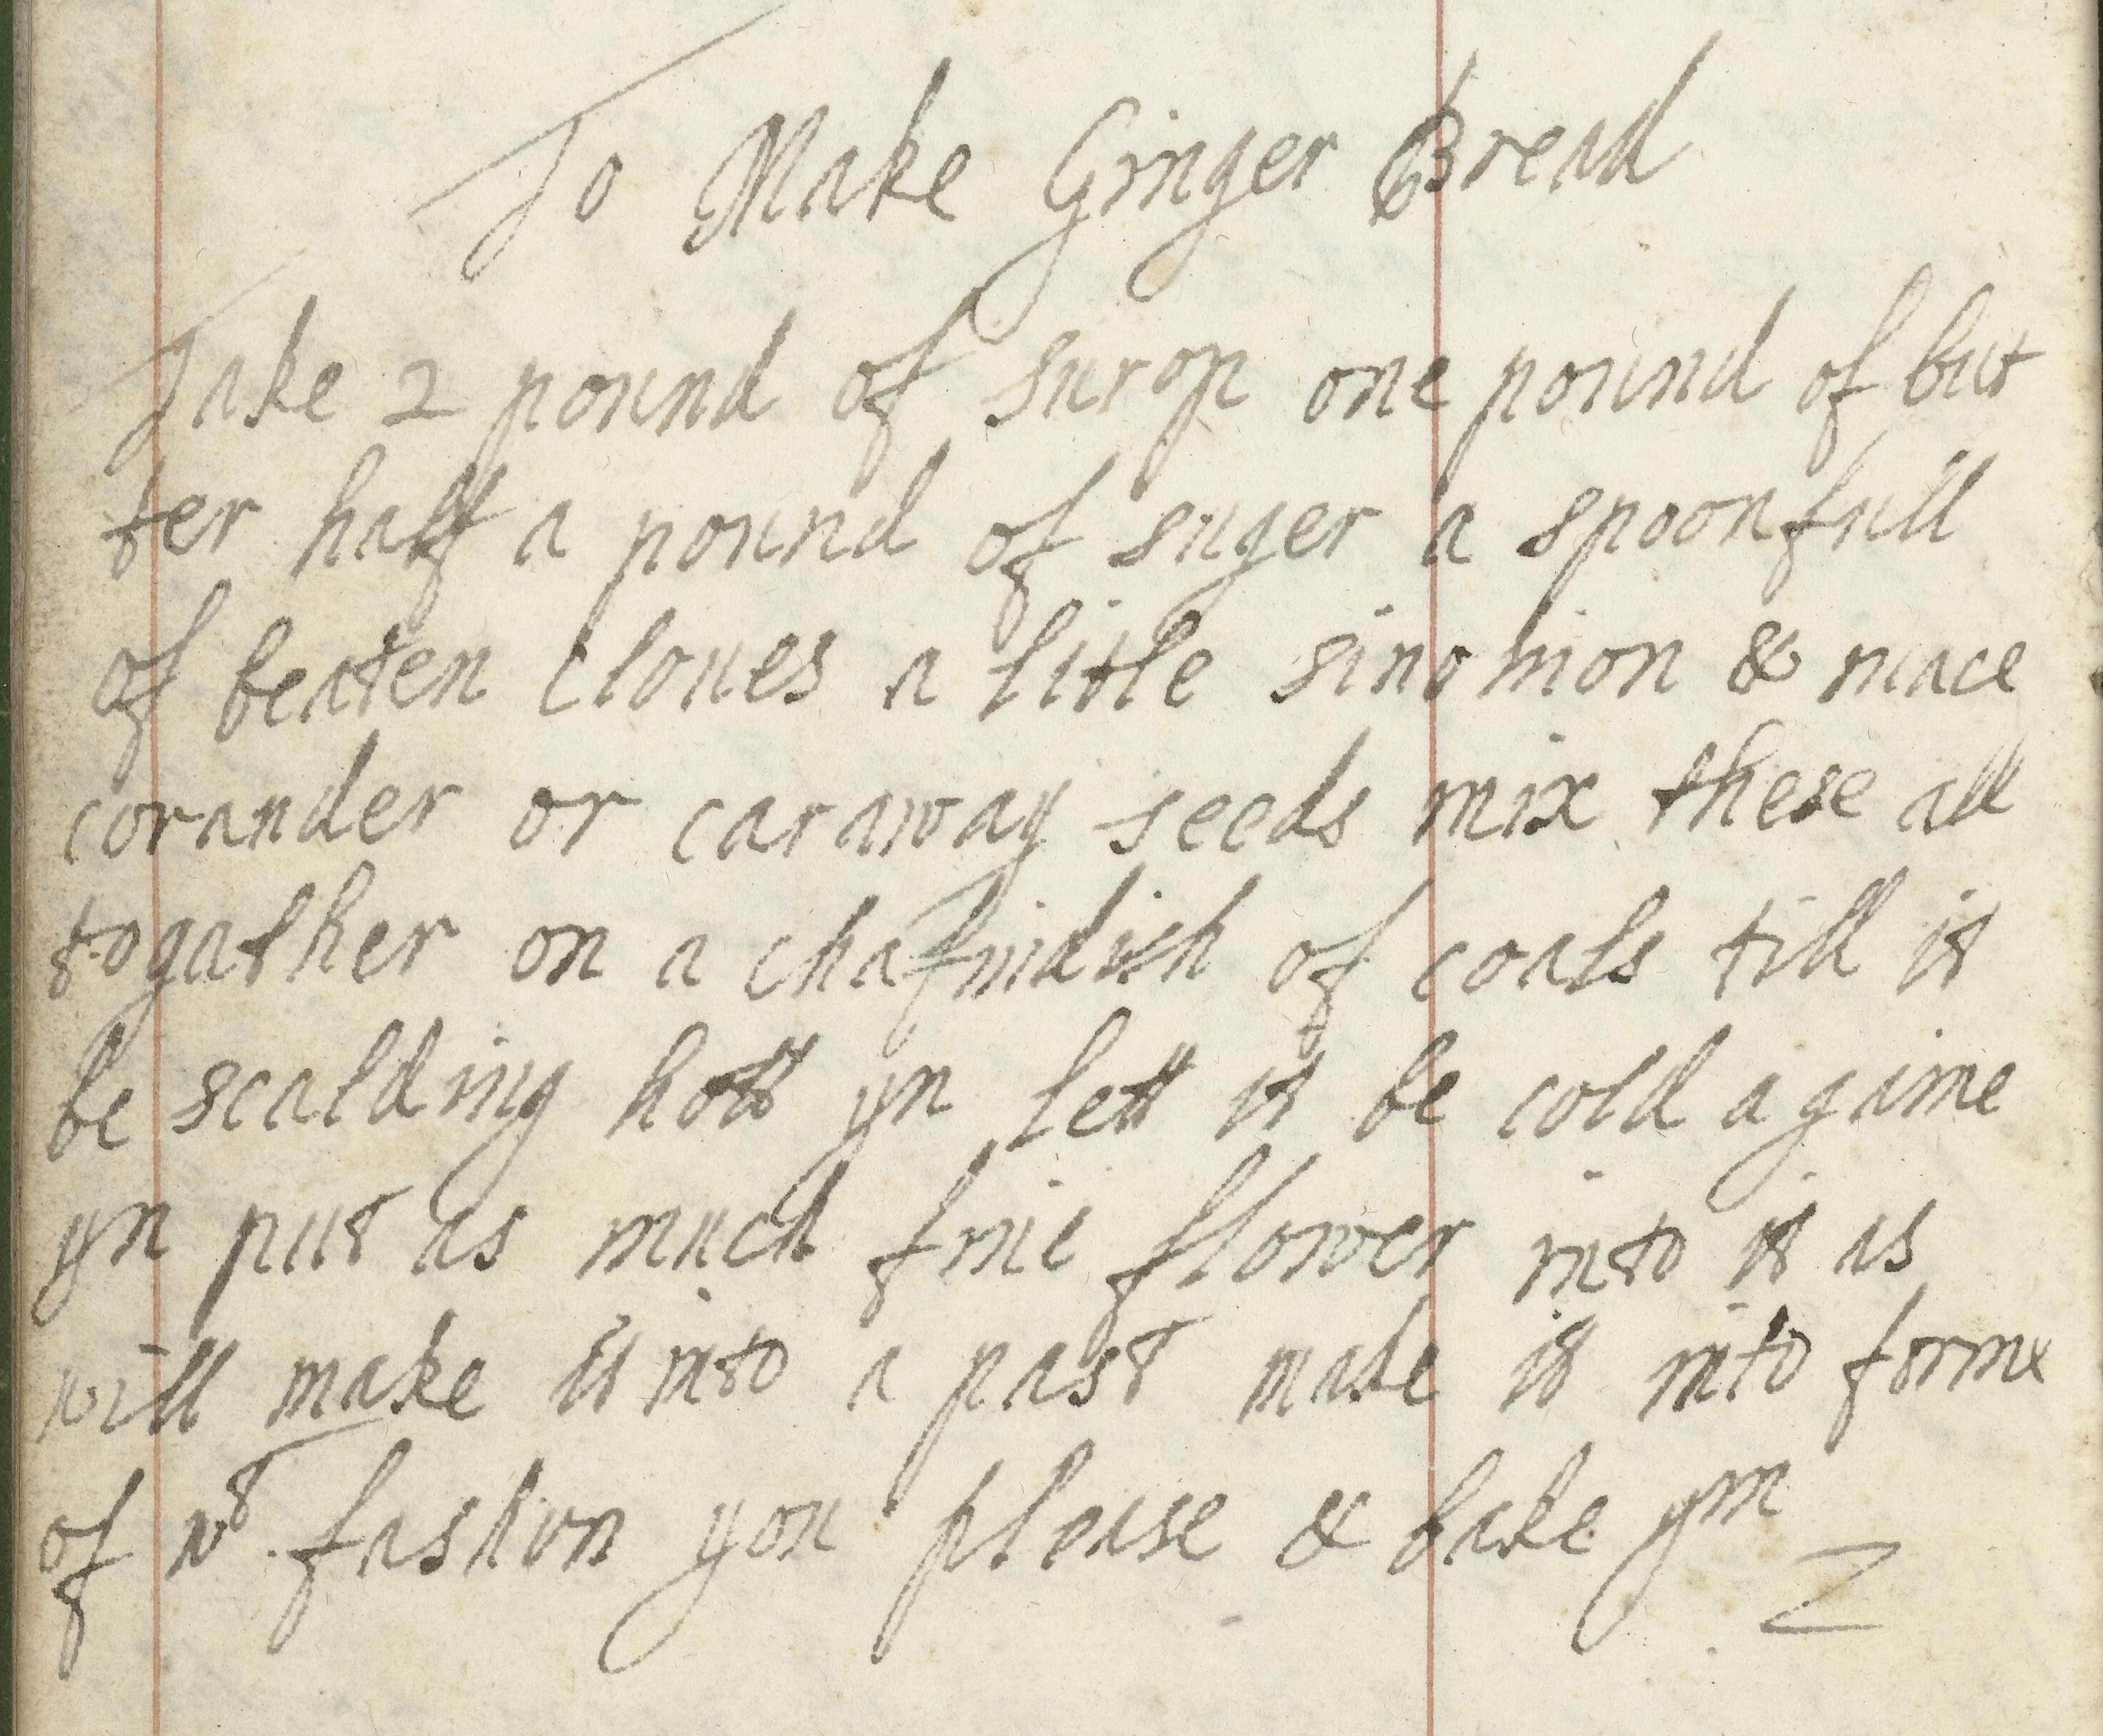 To Make Ginger Bread
Take 2 pound of surop one pound of but
ter half a pound of suger a spoonfull
of beaten cloues a litle sinomon & mace
corander or caraway seeds mix these all
togather on a chafindish of coals till it
be scalding hott yn lett it be cold againe
yn put as much fine flower into it as
will make it into a past make it into forme
of wt fashon you please & bake ym